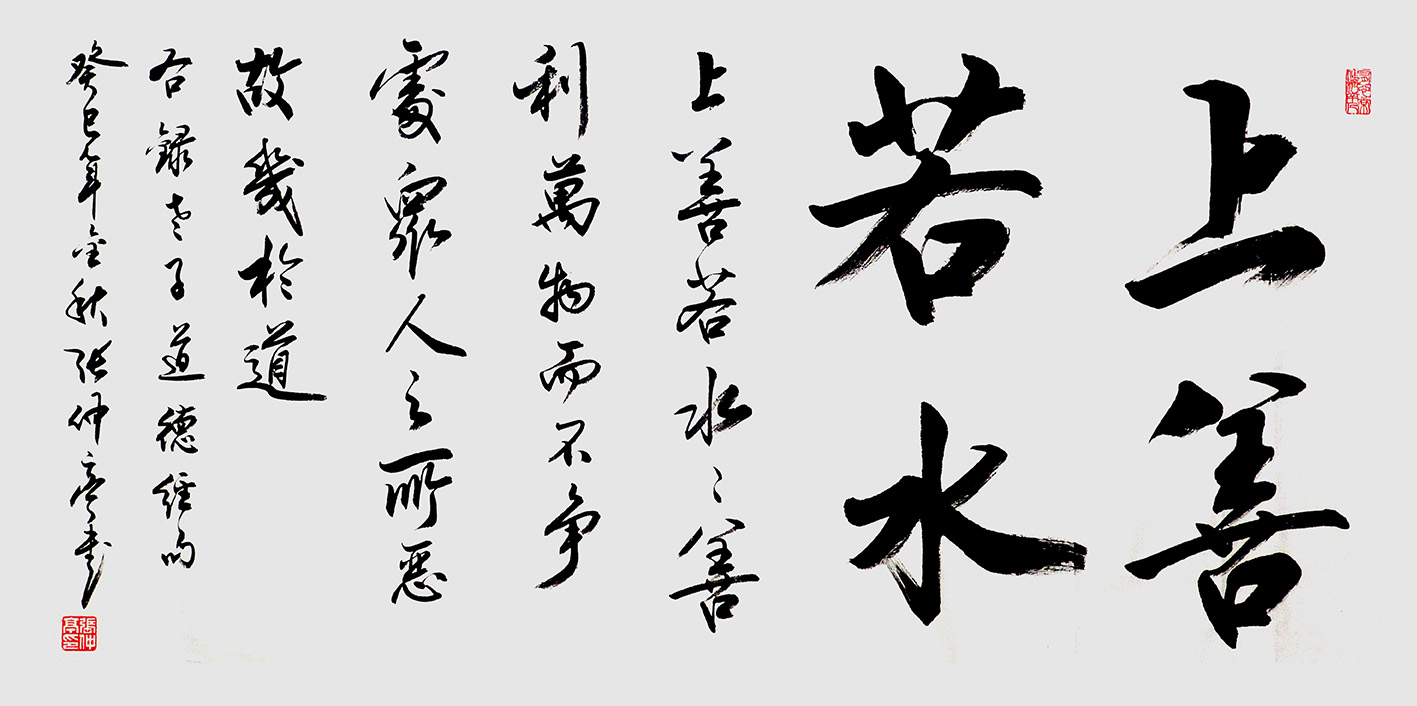 上善
若水
上善若水〻善
利萬物而不争
處衆人之所惡
故幾於道
右録老子道德经句
癸巳年金秋张仲亭书
張仲亭印